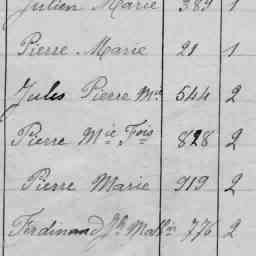 Julien Marie 389 1
Pierre Marie 21 1
Jules Pierre Mie 544 2
Pierre Mie Fois 828 2
Pierre Marie 919 2
Ferdinand 776 2